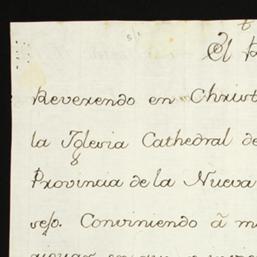 El R
Reverendo en Christ
la Iglesia Cathedral de
Provincia de la Nueva
vejo. Conviniendo â m